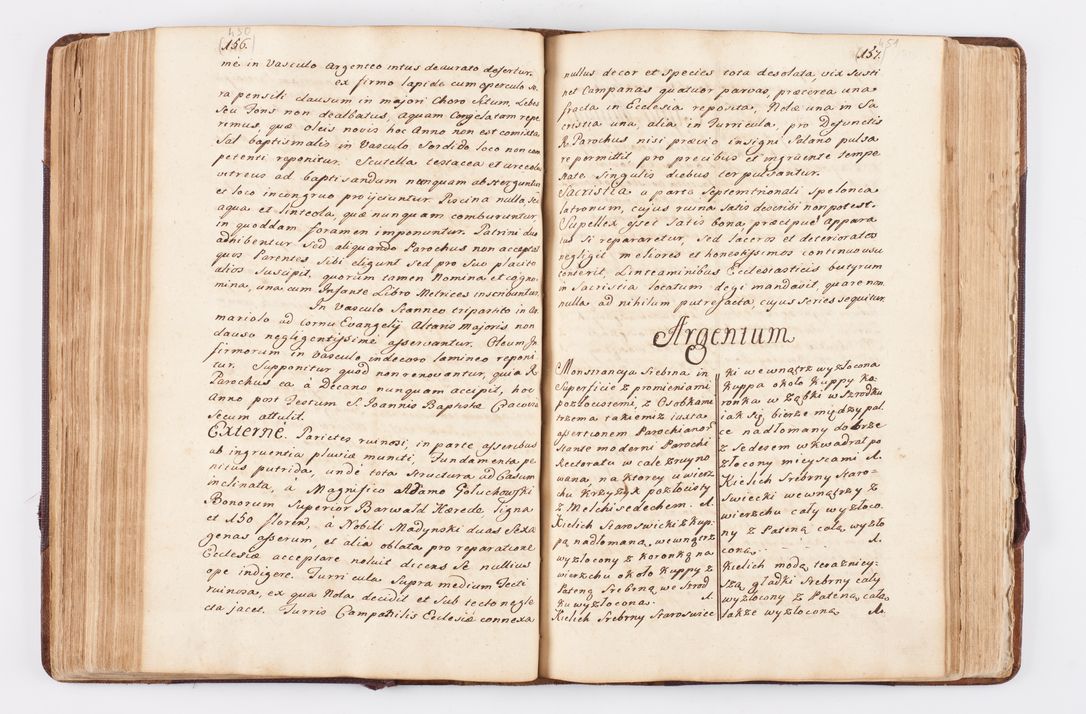 450
(156.)
mè in Vasculo Argenteo intus deaurato defertur.
ex firmo lapide cum operculo se-
ra pensili clausum in majori Choro situm, Lebes
seu Fons non dealbatus, aquam Congelatam repe
rimus, quæ oleis novis hoc Anno non est comixta
Sal baptismalis in Vasculo Sordido loco non com
petenti reponitur. Scutella testacea et urceolus
vitreus ad baptisandum nunquam absterguntur
et loco incongruo projiciuntur. Piscina nulla, sed
aqua et linteola, quæ nunquam comburuntur,
in quoddam foramen imponuntur. Patrini duo
adhibentur sed aliquando Parochus non acceptat
quos Parentes sibi eligunt sed pro suo placito
alios suscipit, quorum tamen Nomina et cogno-
mina, una cum Infante Libro Metrices inscribuntur
In Vasculo Stanneo tripartito in Ar
mariolo ad Cornu Evangelij Altaris Majoris non
clauso negligentissimè asservantur. Oleum In
firmorum in Vasculo indecoro lamineo reponi
tur. Supponitur quod non renovantur, quia R.
Parochus ea à Decano nunquam accipit, hoc
Anno post Festum S. Joannis Baptistæ Cracovia
Secum attulit.
Externè. Parietes ruinosi, in parte asseribus
ab ingruentia pluviæ muniti, Fundamenta pe
nitus putrida, undè tota Structura ad Casum
inclinata, à Magnifico Adamo Goluchowski
Bonorum Superior Barwald Hærede ligna
et 150 floren, à Nobili Madynski duas Sexa
genas asserum, et alia oblata pro reparatione
Ecclesiæ acceptare noluit dicens se nullius
ope indigere. Turricula Supra medium Tecti
ruinosa, ex qua Nola decidit et sub tecto negle
cta jacet. Turris Campanilis Ecclesiæ connexa
451
(157.)
nullus decor et Species tota desolata, vix susti
net Campanas quatuor parvas, præterea una
fracta in Ecclesia reposita, Nolæ una in Sa
cristia una, alia in Turricula, pro Defunctis
R. Parochus nisi prævio insigni Solario pulsa
re permittit, pro precibus et ingruente tempe
state Singulis diebus ter pulsantur.
Sacristia a parte Septemtrionali spelonca
latronum, cujus ruina satis describi non potest.
Supellex esset satis bona, præcipuè appara
tus si repararetur, sed laceros et deterioratos
negligit meliores et honestissimos continuo usu
conterit, Linteaminibus Ecclesiasticis butyrum
in Sacristia locatum tegi mandavit, quare non
nulla ad nihilum putrefacta, cujus series sequitur.
Argentum
Monstrancya Srebrna in
Superficie z promieniami
pozłocistemi, z Osobkami
trzema takiemiż iuxta
assertionem Parochianor
stante moderni Parochi
Rectoratu w cale zruyno
wana, na ktorey u wierz
chu krzyżyk pozłocisty
z Melchisedechem. N.
Kielich Staroswicki z kup
pą nadłomaną, wewnątrz
wyzłocony z Koronką na
wierzchu około kuppy z
Pateną Srebrną we srod
ku wyzłocona. N.
Kielich Srebrny Staroswiec
ki wewnątrz wyzłocona
kuppa około kuppy ko
ronka w ząbki w szrodku
iak się bierze między pal
ce nadłomany dobrze
z sedesem w kwadrat po
złocony mieyscami N.
Kielich Srebrny Staro-
swiecki wewnątrz y z
wierzchu cały wyzłoco
ny z Pateną całą wyzło
coną. N.
Kielich modą teraznieg-
szą, gładki Srebrny cały
wyzłocony z Pateną całą
także wyzłoconą N.